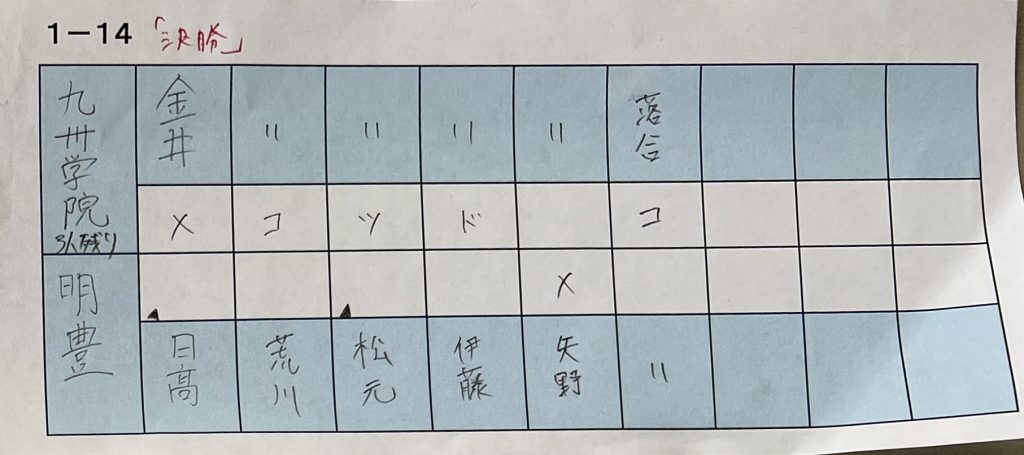 1-14 「決勝」
九州学院 3人残り 金井 〃 〃 〃 〃 落合
メ コ ツ ド コ
メ
明豊 日高 荒川 松元 伊藤 矢野 〃